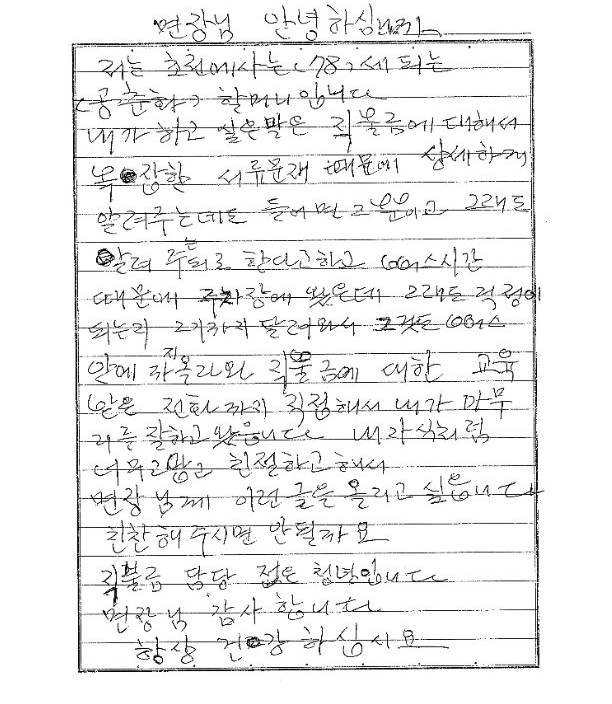 면장님 안녕하심니까
저는 초전에사는 78,세 되는
(공춘화) 할머니입니다
내가 하고 싶은말은 직불금에 대해서
복잡한 서류문재 때문에 상세하게
알려주는데도 들어면 그뿐이고 그래도
알려 주는 한다고하고 시간
때문에 주차장에 왔은데 그래도 걱정이
되는지 그기까지 달려와서 그것도
앞에 까지 올라와 직불금에 대한 교육
받은 전화까지 직접해서 내가 마무
리를 잘하고 왔읍니다 내자식처럼
너무고맙고 친절하고해서
면장님께 이런글을 올리고 싶읍니다
칭찬해주시면 안될까요
직불금 담당 젊은 청년입니다
면장님 감사합니다
항상 건강하십시요